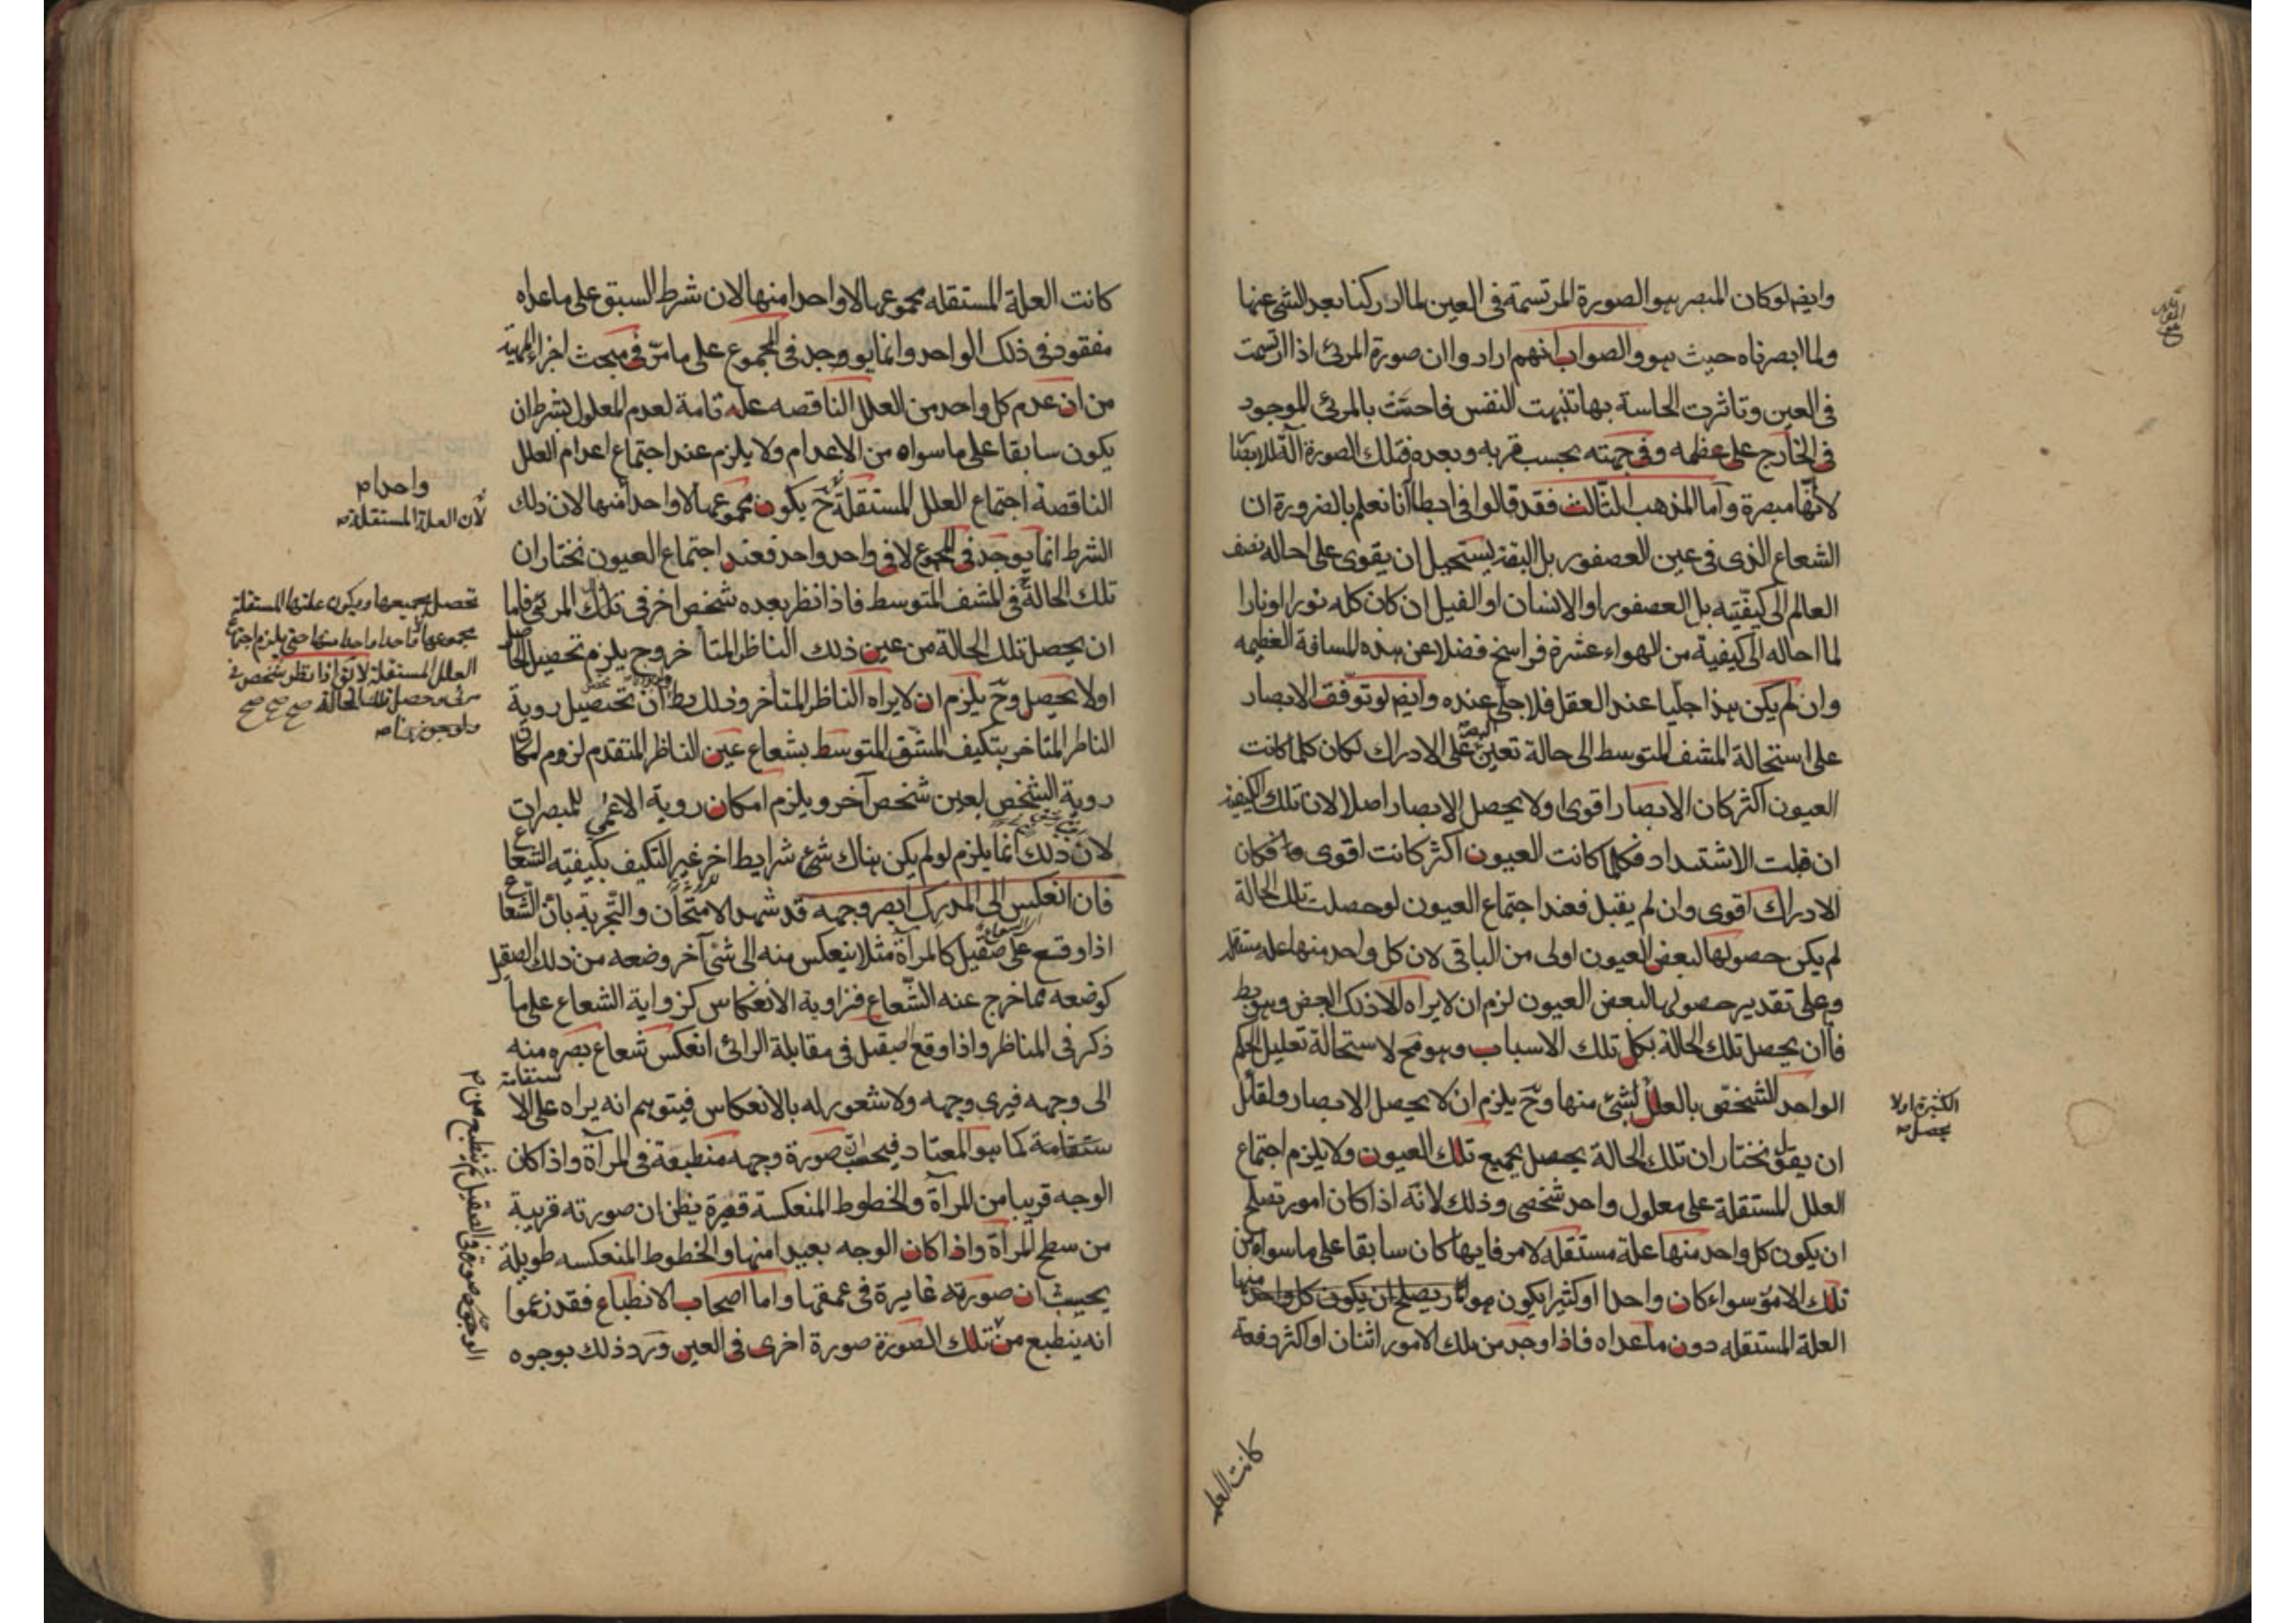 وايض لوكان المبصر هو الصورة المرتسمة فى العين لما ادركنا بعد الشئ عنها
ولما ابصرناه حيث هو والصواب انهم ارادوا ان صورة المرئ اذا ارتسمت
فى العين وتاثرت الحاسة بها تنبهت النفس فاحست بالمرئ الموجود
فى الخارج على عظمه وفى جهته بحسب قربه وبعده فتلك الصورة آلة للابصار
لا انها مبصرة وآما المذهب الثالث فقد قالوا فى ابطاله انا نعلم بالضرورة ان
الشعاع الذى فى عين العصفور بل البقة يستحيل ان يقوى على احاله نصف
العالم الى كيفيته بل العصفور او الانسان او الفيل ان كان كله نورا او نارا
لما احاله الى كيفية من الهواء عشرة فراسخ فضلا عن هذه المسافة العظيمه
وان لم يكن هذا جليا عند العقل فلا جلى عنده وايض لو توقف الابصار
على استحالة المشف المتوسط الى حالة تعين على الادراك لكان كلما كانت
العيون اكثر كان الابصار اقوى او لا يحصل الابصار اصلا لان تلك الكيفية
ان قبلت الاشتداد فكلما كانت العيون اكثر كانت اقوى فكان
الادراك اقوى وان لم يقبل فعند اجتماع العيون لو حصلت تلك الحالة
لم يكن حصولها لبعض العيون اولى من الباقى لان كل واحد منها عله مستقله
وعلى تقدير حصولها لبعض العيون لزم ان لا يراه الا ذلك البعض وهو بط
فاان يحصل تلك الحالة بكل تلك الاسباب وهو مح لاستحالة تعليل الحكم
الواحد الشخصى بالعلل لشئ منها وح يلزم ان لا يحصل الابصار ولقائل
الكثيرة او لا
يحصل
ان يقول نختار ان تلك الحالة يحصل بجميع تلك العيون ولا يلزم اجتماع
العلل المستقلة على معلول واحد شخصى وذلك لانه اذا كان امور تصلح
ان يكون كل واحد منها علة مستقله لامر فايها كان سابقا على ما سواه من
تلك الامور سواء كان واحدا او كثيرا يكون هو مما يصلح ان يكون كل واحد منها
العلة المستقله دون ما عداه فاذا وجد من تلك الامور اثنان او اكثر دفعة
كانت العله
كانت العلة المستقله مجموعها لا واحدا منها لان شرط السبق على ما عداه
مفقود فى ذلك الواحد وانما يوجد فى المجموع على ما مر فى مبحث اجزاء المهية
من ان عدم كل واحد من العلل الناقصه عله تامة لعدم المعلول بشرط ان
يكون سابقا على ما سواه من الاعدام ولا يلزم عند اجتماع اعدام العلل
الناقصة اجتماع العلل المستقلة ح يكون مجموعها لا واحدا منها لان ذلك
لان العلة المستقلة
الشرط انما يوجد فى المجموع لا فى واحد واحد فعند اجتماع العيون نختار ان
تلك الحالة فى المشف المتوسط فاذا نظر بعده شخص اخر فى تلك المرئى فاما
تحصل بجميعها ويكون علتها المستقلة
مجموعها لا واحدا واحدا منها حتى يلزم اجتماع
العلل المستقلة لانه اذا نظر شخص فى
مرئى وحصل تلك الحالة صح صح صح
ان يحصل تلك الحالة من عين ذلك الناظر المتأخر وح يلزم تحصيل الحاصل
اولا يحصل وح يلزم ان لا يراه الناظر المتأخر وذلك بط ان تحصيل روية
الناظر المتاخر بتكيف المشف المتوسط بشعاع عين الناظر المتقدم لزوم امكان
روية الشخص بعين شخص آخر ويلزم امكان روية الاعمى للمبصرات
لان ذلك انما يلزم لو لم يكن هناك شئ شرايط اخر غير التكيف بكيفيته الشعاع
فان انعكس الى المدرك ابصر وجهه قد شهد الامتحان والتجربة بان الشعاع
اذا وقع على صقيل كالمرآة مثلا ينعكس منه الى شئ آخر وضعه من ذلك الصقيل
كوضعه مما خرج عنه الشعاع فزاوية الانعكاس كزاوية الشعاع على ما
ذكر فى المناظر واذا وقع الصقيل فى مقابلة الرائى انعكس شعاع بصره منه
الى وجهه فيرى وجهه ولا شعور له بالانعكاس فيتوهم انه يراه على الا
ستقامة كما هو المعتاد فيحسب ان صورة وجهه منطبعة فى المرآة واذا كان
الوجه قريبا من المرآة والخطوط المنعكسة قصيرة يظن ان صورته قريبة
من سطح المرآة واذا كان الوجه بعيدا منها والخطوط المنعكسه طويلة
يحسب ان صورته غايرة فى عمقها واما اصحاب الانطباع فقد زعموا
انه ينطبع من تلك الصورة صورة اخرى فى العين ورد ذلك بوجوه